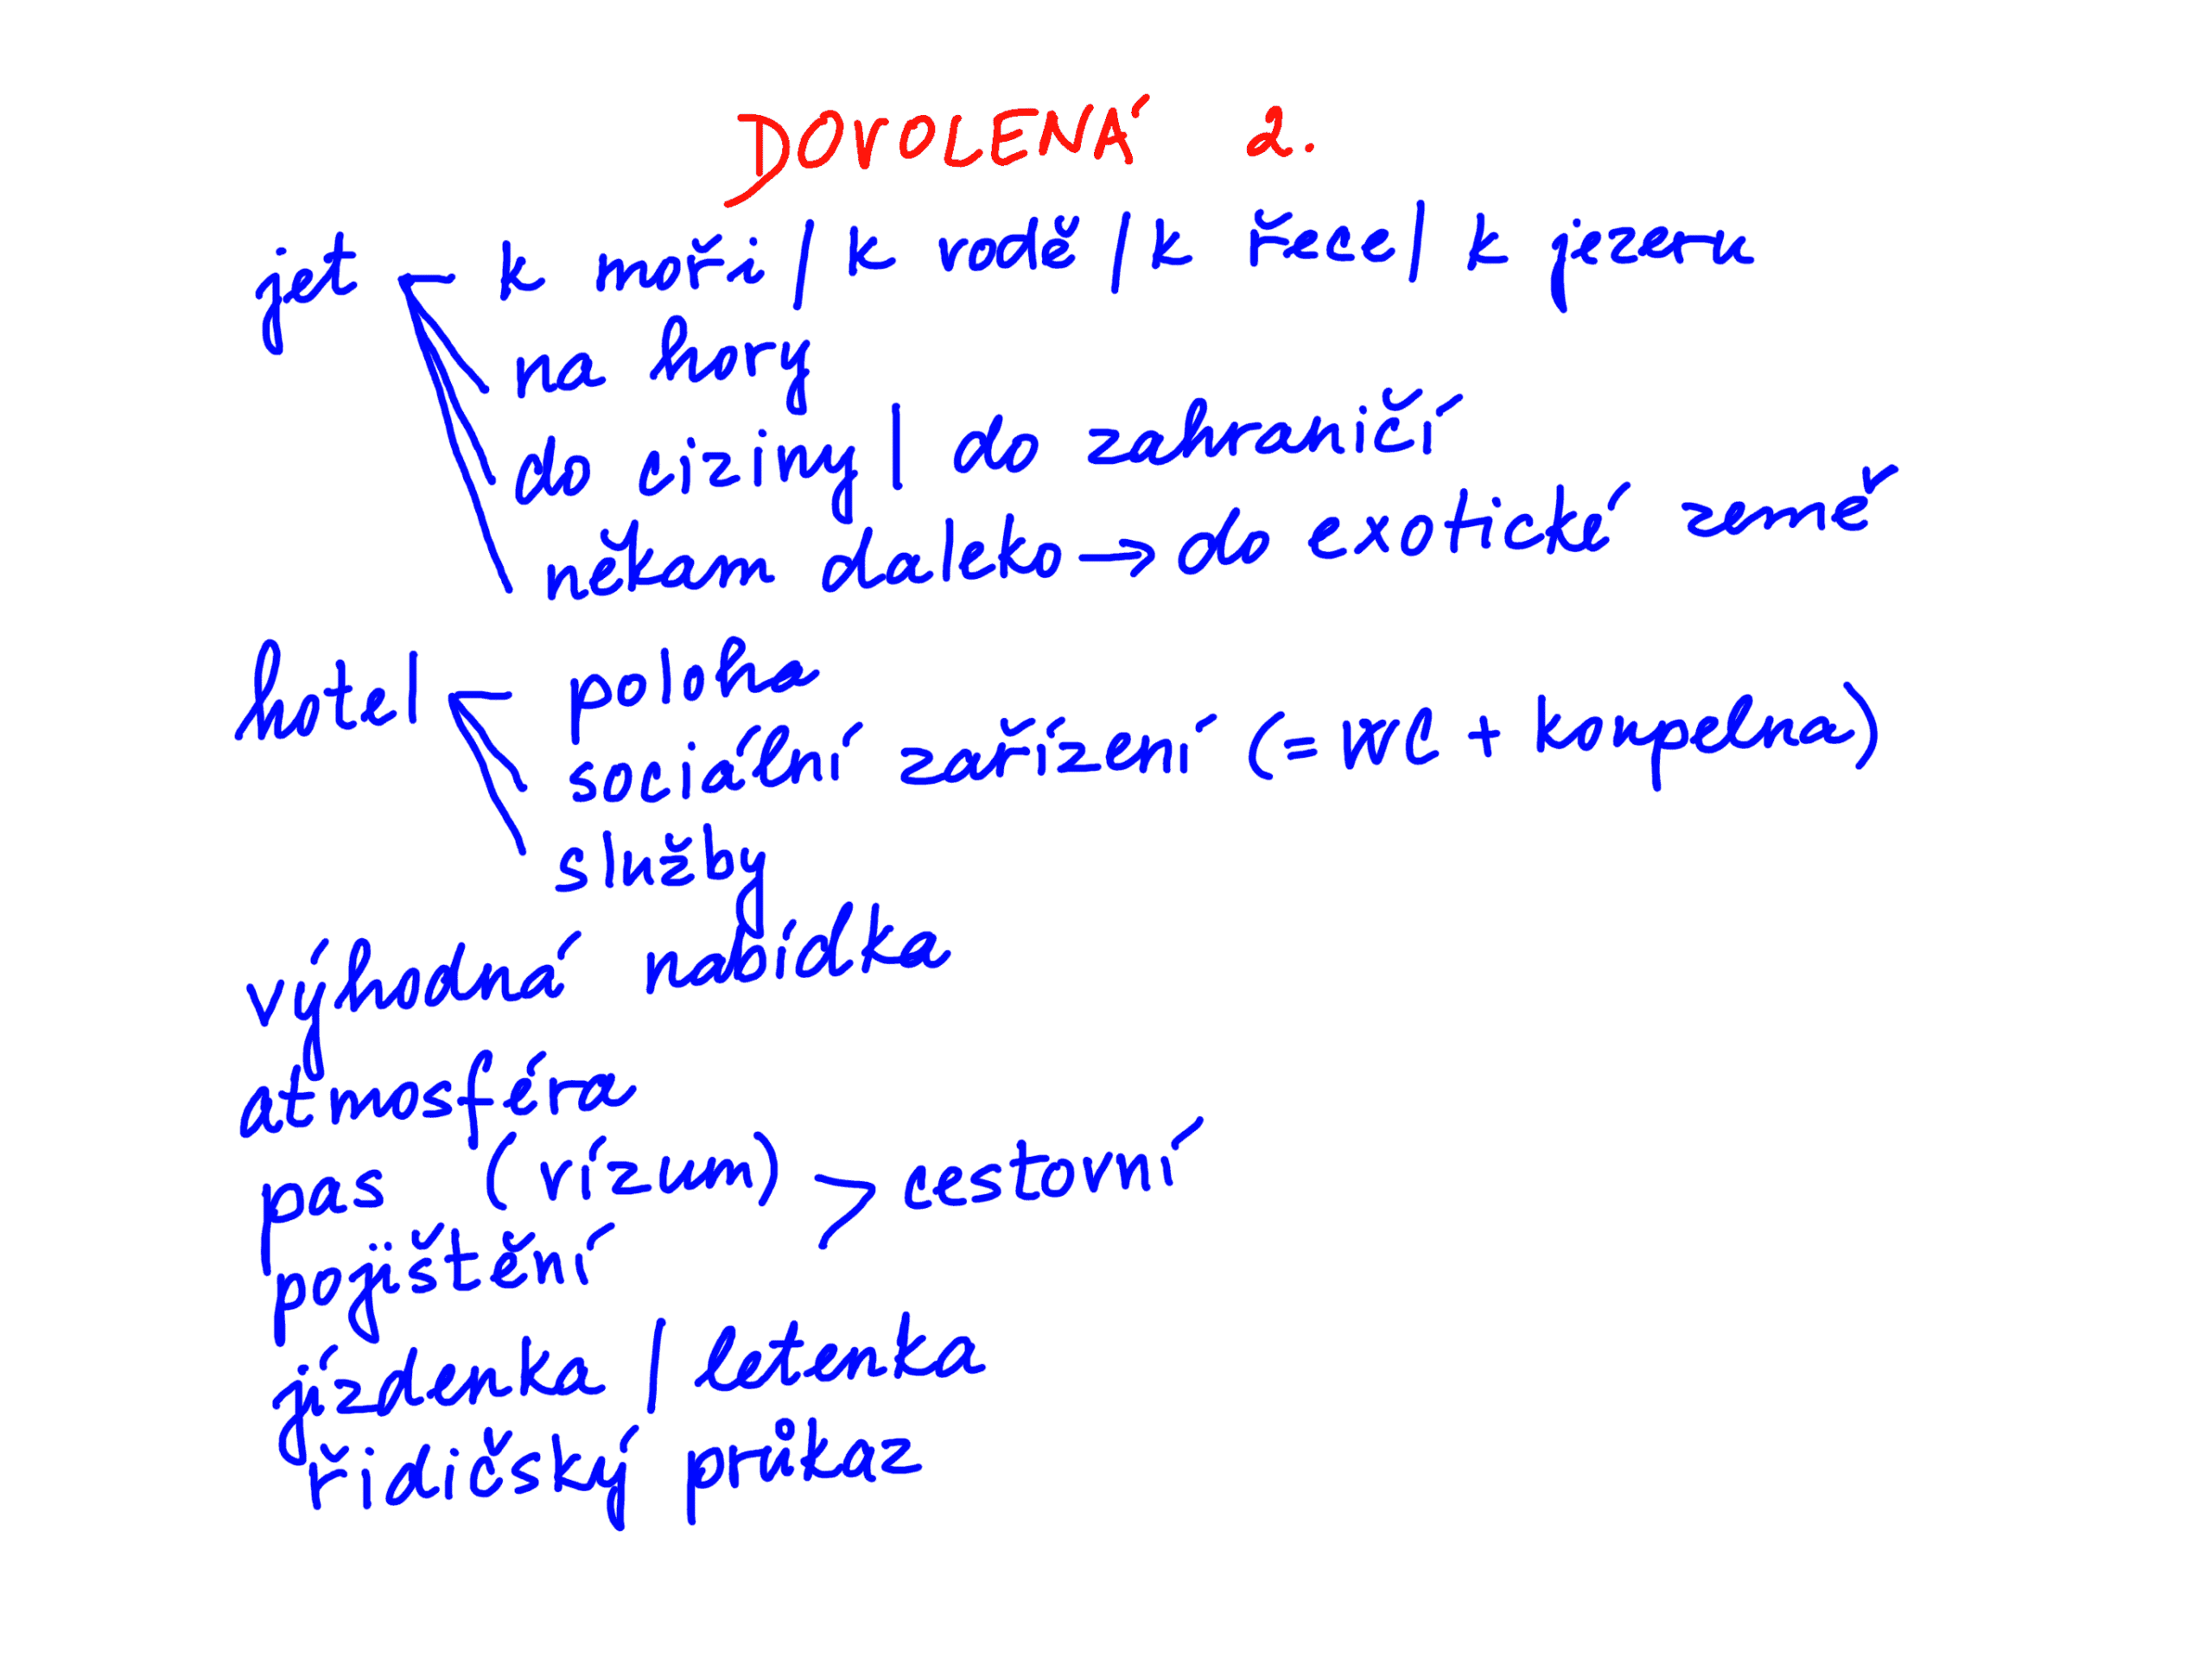 DOVOLENÁ 2.
jet k moři / k vodě / k řece / k jezeru
na hory
do ciziny / do zahraničí
někam daleko → do exotické země
hotel poloha
sociální zařízení (= WC + koupelna)
služby
výhodná nabídka
atmosféra
pas (vízum) > cestovní
pojištění
jízdenka / letenka
řidičský průkaz